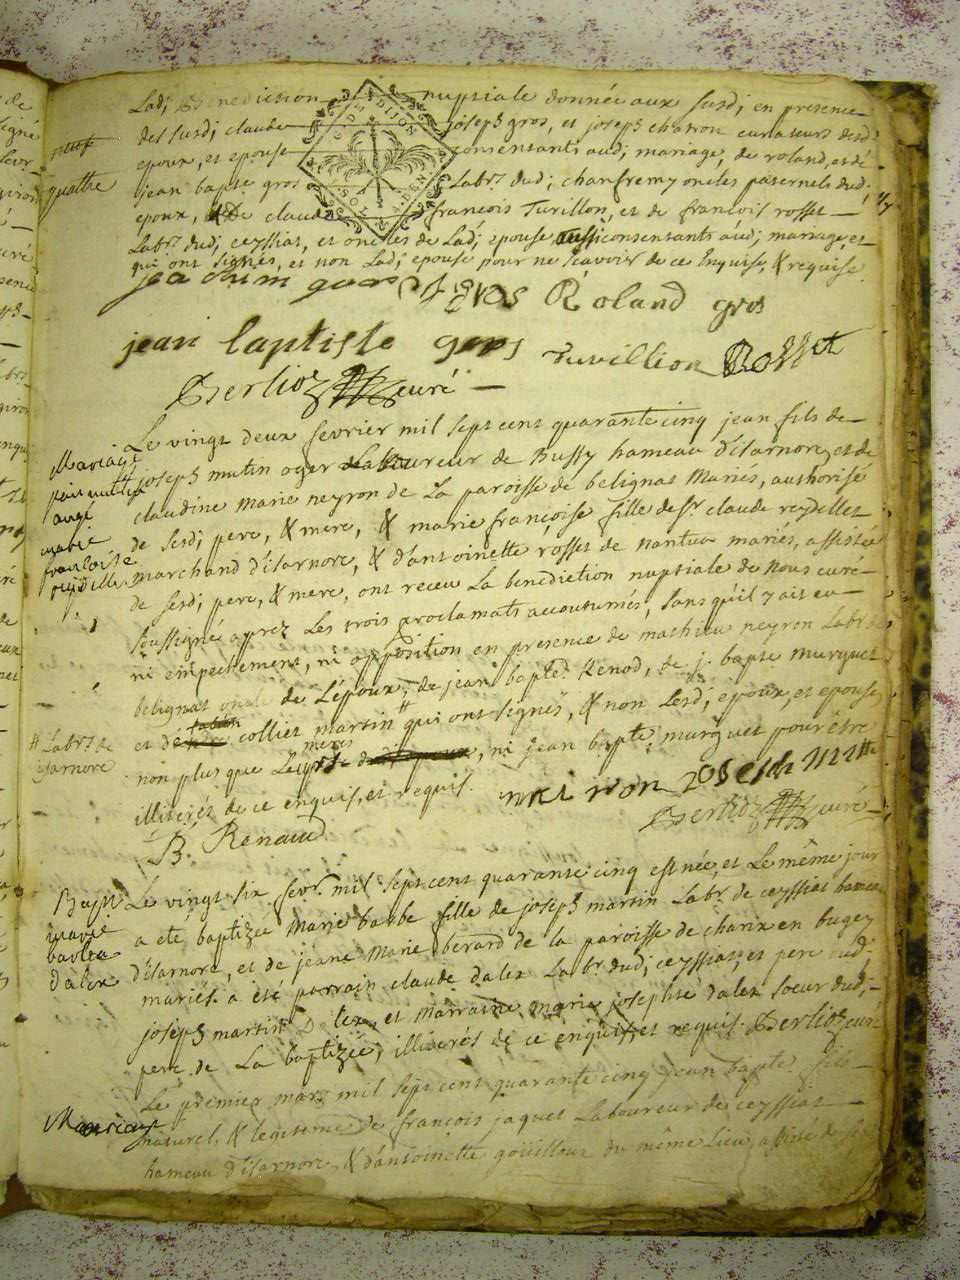 Lad; Benediction nuptiale donnée aux susd; en presence
des susd; claude joseph gros, et joseph chatron curateurs desd
epoux, et epouse consentants aud; mariage, de roland, et de
jean bapte gros Labrs dud; chanfremy oncles paternels dud.
epoux, & De claude françois Tuvillon, et de francois rosset
Labrs dud; ceyssiat, et oncles de Lad; epouse aussi consentants aud; mariage, et
qui ont signés, et non Lad; epouse pour ne scavoir de ce Enquise, & requise
quatre
gros Roland gros
jean baptiste gros tuvillion Rosset
Berlioz curé
Le vingt deux fevrier mil sept cent quarante cinq jean fils de
joseph mutin oger Laboureur de Bussy hameau d'isarnore, et de
claudine marie neyron de La paroisse de belignat Mariés, authorisé
de sesd; pere, & mere, & marie françoise fille de sr claude reydellet
marchand d'isarnore, & d'antoinette rosset de nantua mariés, assistée
de sesd; pere, & mere, ont receu La benediction nuptiale de Nous curé
soussigné apprez Les trois proclamats accoutumés, sans qu'il y ait eu
ni empechement, ni opposition en presence de mathieu neyron Labr de
belignat oncle de L'époux, de jean bapte Renod, de j. bapte murguet
et de collier martin # qui ont signés, & non Lesd; epoux, et epouse,
non plus que Leurs meres, ni jean bapte murguet pour être
illiterés de ce enquis, et requis.
Mariage
marie
françoise
# Labrs de
isarnore
neiron joseph mutin
Berlioz curé
B. Renaud
Bapt
marie
barbe
dalex
Le vingt six fevr. mil sept cent quarante cinq est née, et Le même jour
a eté baptizée Marie barbe fille de joseph martin Labr. de ceyssiat hameau
d'isarnore, et de jeane Marie berard de la paroisse de charix en bugey
mariés. a été parrain claude dalex Labr dud; ceyssiat, et pere dud;
joseph martin Dalex, et marraine marie josephte dalex soeur dud;
pere de La baptizée, illiterés de ce enquis, et requis. Berlioz curé
Mariage
Le premier mars mil sept cent quarante cinq jean bapte fils
naturel, & legitime de françois jaquet Laboureur de ceyssiat
hameau d'isarnore, & d'antoinette goüilloux du même Lieu, assisté de